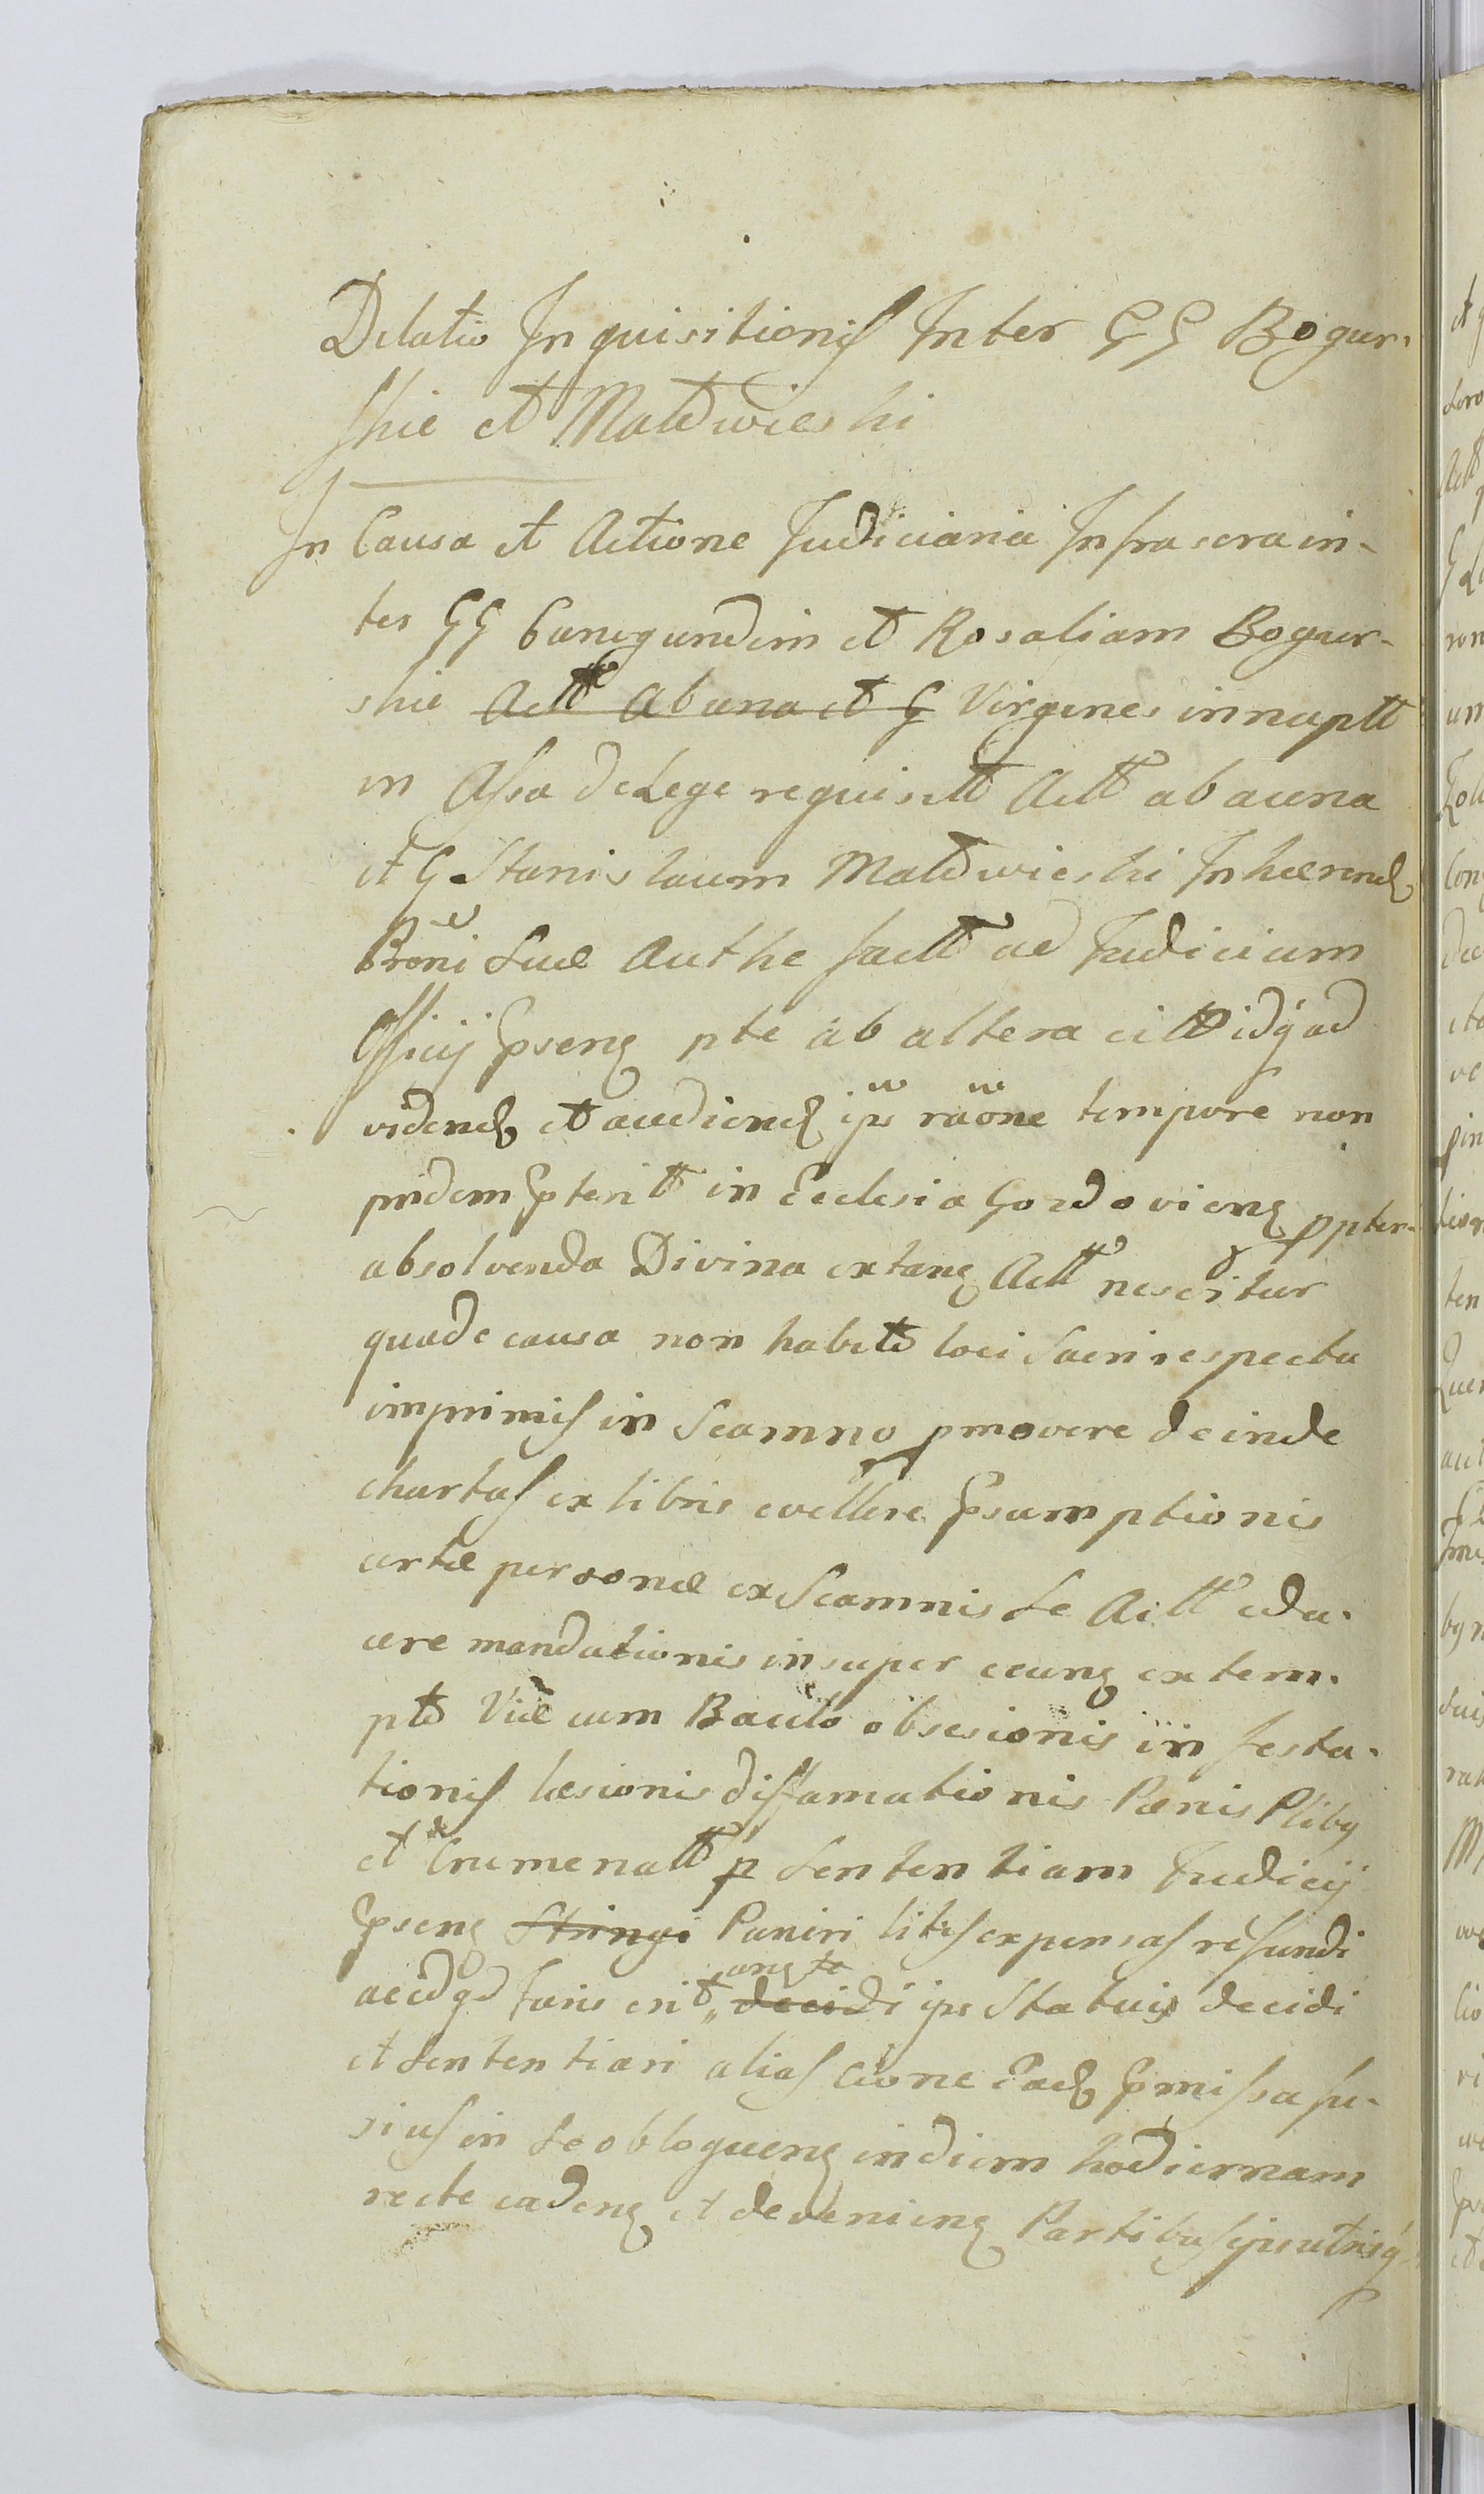 Delatio Inquisitionis Inter GG Bogur-
skie et Matdwieski
In Causa et Actione Judiciaria Infrascra in-
ter GG Cunegundem et Rosaliam Bogur-
skie Actt ab una et G Virgines innuptt
in Assa de Lege requisitt Actt ab auna
et G Stanislaum Matdwieski Inhærend
Proni Suæ Authe factt ad Judicium
Officij Pseng pte ab altera citt idq ad
vidend et audiend ips raõne tempore non
pridem Pterito in Ecclesia Gozdovieng ppter
absolvenda Divina extang Actt nescitur
qua de causa non habito loci Sacri respectu
imprimis in Scamno pmovere deinde
chartas ex libris evellere Psumptionis
certæ personæ ex Scamnis Se Actt edu-
cere mandationis insuper eeung extem-
pto Viæ cum Baculo obsesionis infesta-
tionis læsionis diffamationis Pænis Pliby
et Crumenatt p Sententiam Judicij
Pseng Stringi Puniri litis expensas refundi
ac id qd Juris erit decidi ips Statui decidi
et Sententiari alias Cione Ead Pmissa fu-
sius in Se obloqueng in diem hodiernam
recte cadeng et devenieng Partibus ips utrisq